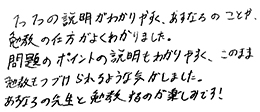 1つ1つの説明がわかりやすく、あすなろのことや、
勉教の仕方がよくわかりました。
問題のポイントの説明もわかりやすく、このまま
勉教もつづけられるような気がしました。
あすなろの先生と勉教するのが楽しみです!